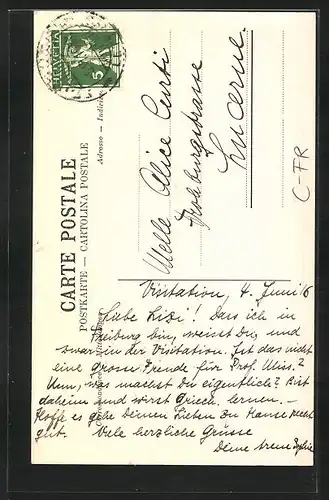 HELVETIA
5
CARTE POSTALE
POSTKARTE — CARTOLINA POSTALE
Adresse — Indirizzo
Melle Alice Curti
Frohburgstrasse
Lucerne.
C-FR
Visitation, 4. Juni 16
Liebe Lisi! Dass ich in
Freiburg bin, weisst Du, und
zwar in der Visitation. Ist das nicht
eine grosse Freude für Prof. Miss.?
Nun, was machst Du eigentlich? Bist
daheim und wirst Griech. lernen. –
Hoffe es gehe Deinen Lieben zu Hause recht
gut. Viele herzliche Grüsse
Deine treue